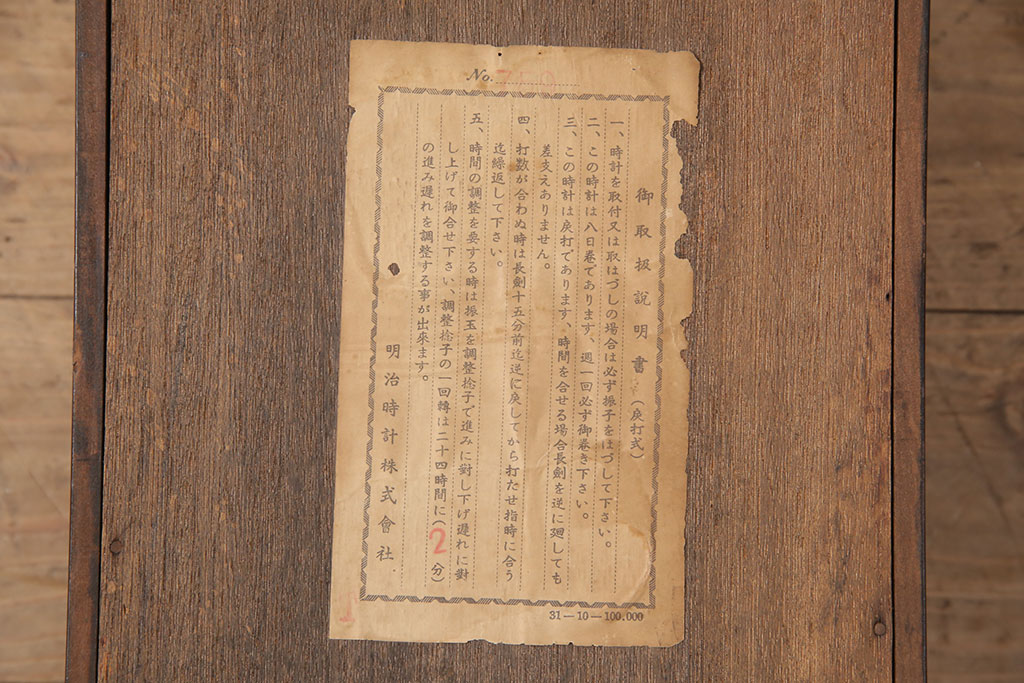 No.
御取扱説明書（戻打式）
一、時計を取付又は取はづしの場合は必ず振子をはづして下さい。
二、この時計は八日巻であります、週一回必ず御巻き下さい。
三、この時計は戻打であります、時間を合せる場合長劍を逆に廻しても
差支えありません。
四、打数が合わぬ時は長劍十五分前迄逆に戻してから打たせ指時に合う
迄繰返して下さい。
五、時間の調整を要する時は振玉を調整捻子で進みに對し下げ遲れに對
し上げて御合せ下さい、調整捻子の一回轉は二十四時間に（2分）
の進み遲れを調整する事が出來ます。
明治時計株式會社
31—10—100.000